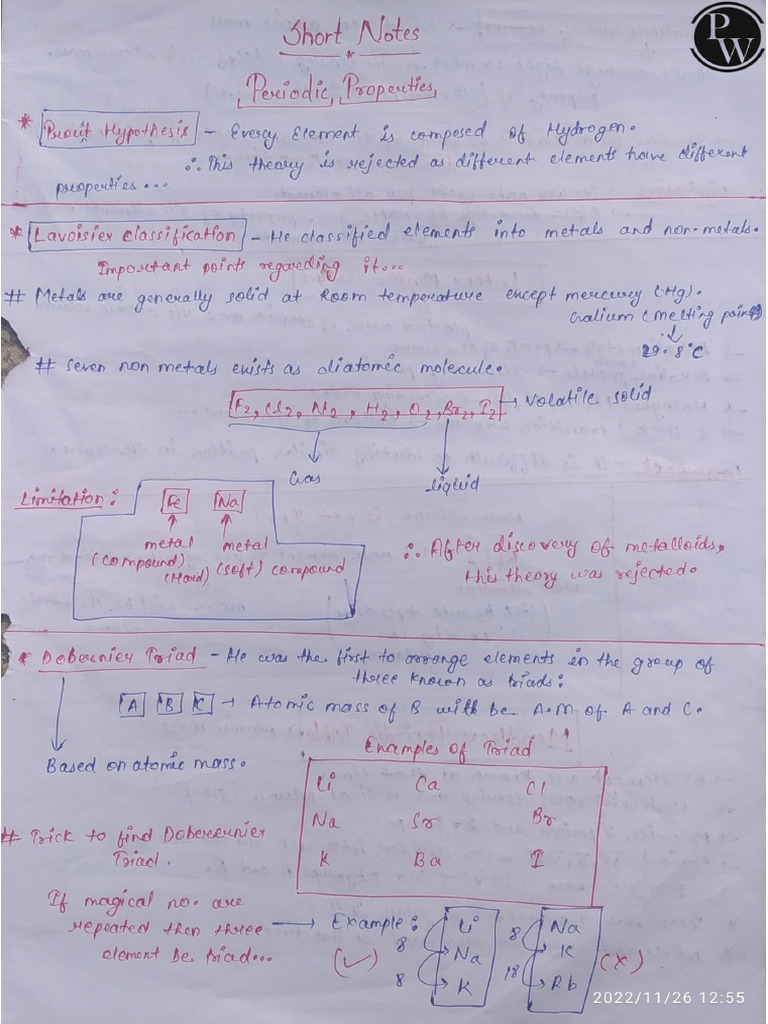 PW
Short Notes
*
Periodic Properties
* Prout Hypothesis - Every Element is composed of Hydrogen.
∴ This theory is rejected as different elements have different
properties...
* Lavoisier Classification - He classified elements into metals and non-metals.
Important points regarding it...
# Metals are generally solid at Room temperature except mercury (Hg).
Galium (Melting point)
29.8°C
# Seven non metals exists as diatomic molecule.
F2, Cl2, N2, H2, O2, Br2, I2 → Volatile solid
Gas
liquid
Limitation:
Fe Na
metal metal
(compound) (Hard) (soft) compound
∴ After discovery of metalloids,
this theory was rejected.
* Doberenier Triad - He was the first to arrange elements in the group of
three known as triads:
A B C → Atomic mass of B with be A.M of A and C.
Based on atomic mass.
Examples of Triad
Li Ca Cl
Na Sr Br
K Ba I
# Trick to find Doberernier
Triad.
If magical no. are
repeated then three
element be triad...
→ Example:
8 Li
Na
8 K
(✓)
8 Na
K
18 Rb
(×)
2022/11/26 12:55